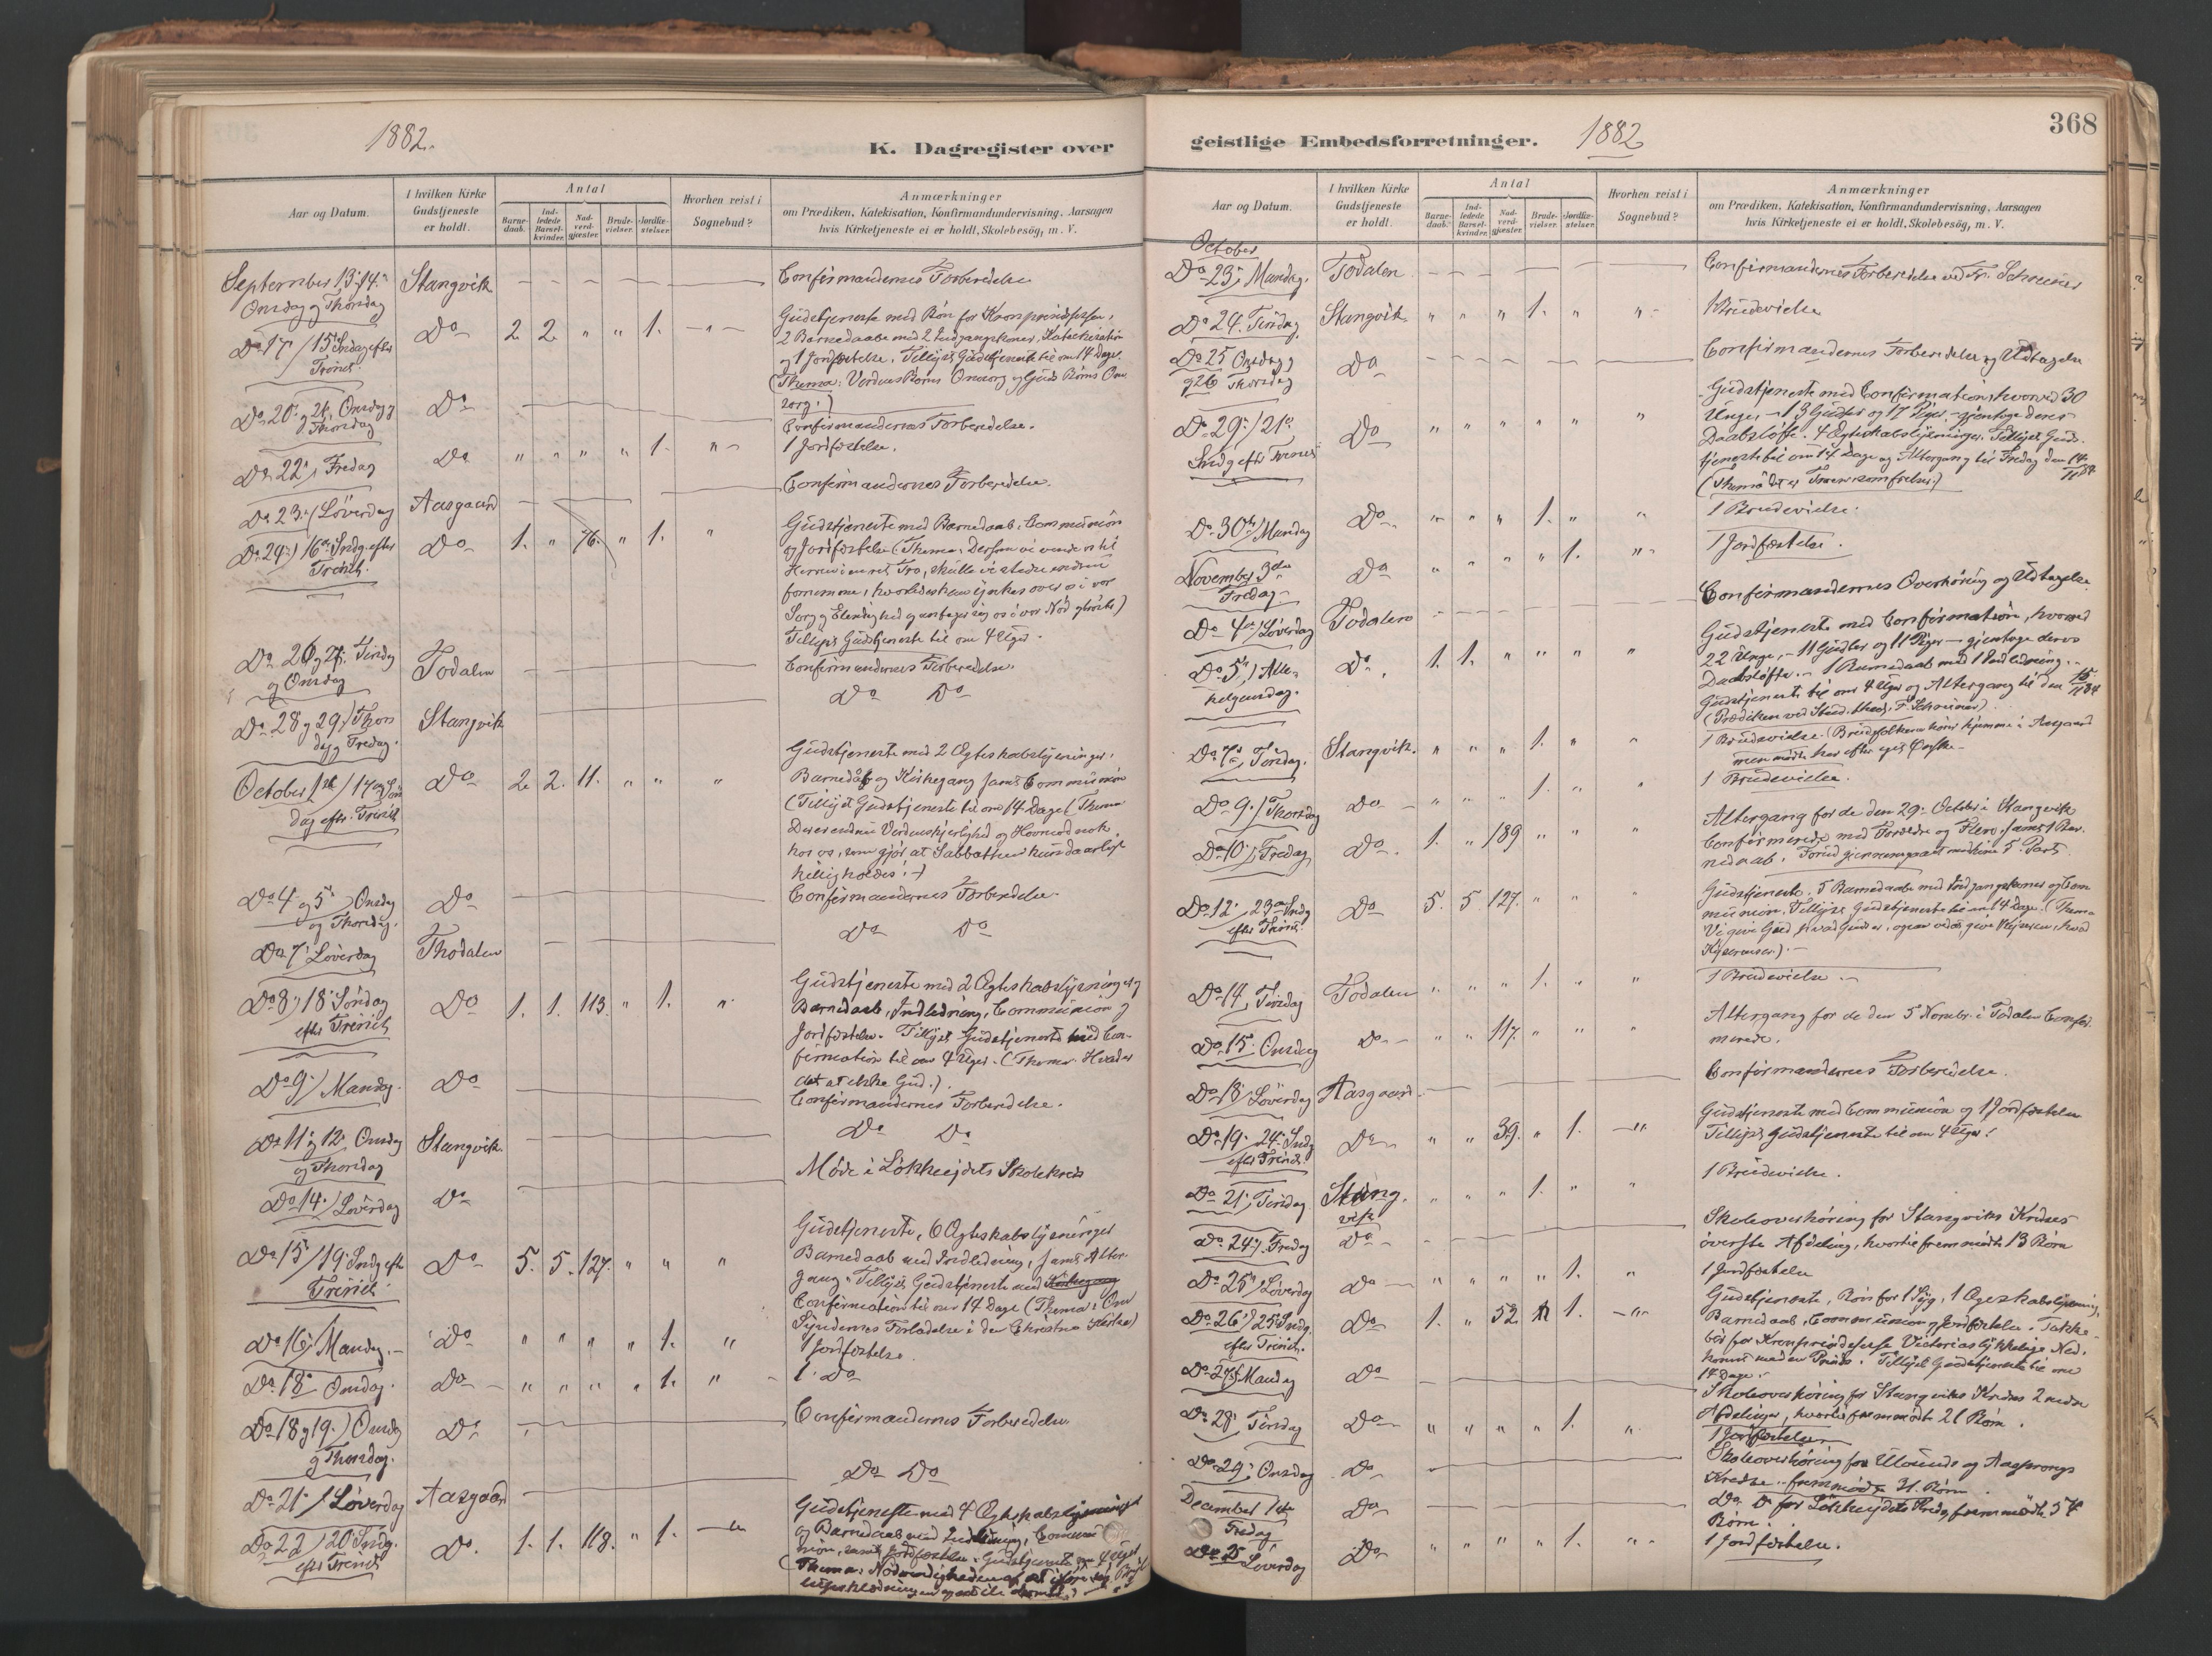 1882.
K. Dagregister over
Aar og Datum.
I hvilken Kirke Gudstjeneste er holdt.
Antal
Barne-daab.
Ind-ledede Barsel-kvinder.
Nad-verd-gjæster.
Brude-vielser.
Jordfæ-stelser.
Hvorhen reist i Sognebud?
Anmærkninger
om Prædiken, Katekisation, Konfirmandundervisning, Aarsagen
hvis Kirketjeneste ei er holdt, Skolebesög, m. V.
September 13. 14. Onsdag og Thorsdag Stangvik Confirmandernes Forberedelse
Do 17. / 15 Søndag efter Trinit. Do 2. 2. " " 1. Gudstjeneste med Bøn for Kronprindsessen,
2 Barnedaabe med 2 Indgangskoner, Katekisation
og 1 Jordfæstelse. Tillyst Gudstjeneste til om 14 Dage.
(Thema: Verdens Børns Omsorg og Guds Børns Om-
sorg.)
Do 20. og 21. Onsdag og Thorsdag Do Confirmandernes Forberedelse.
Do 22. Fredag Do " " " " 1. " 1 Jordfæstelse.
Do 23. Løverdag Aasgaard Confirmandernes Forberedelse.
Do 24. / 16. Søndg. efter Trinit. Do 1. " 76. " 1. " Gudstjeneste med Barnedaab, Communion
og Jordfæstelse (Thema: Dersom vi vende os til
Herren i en ret Tro, skulle vi
fornemme, hvorledes han ynkes over os i vor
Sorg og Elendighed og antager sig os i vor Nød
Tillyst Gudstjeneste til om 4 Uger.
Do 26 og 27. Tirsdag og Onsdag Todalen Confirmandernes Forberedelse.
Do 28 og 29. Thorsdag og Fredag. Stangvik Do Do
October 1ste / 17 Søndag efter Trinit Do 2. 2. 11. " " " Gudstjeneste med 2 Ægteskabslysninger,
Barnedåb og Kirkegang samt Communion
(Tillyst Gudstjeneste til om 14 Dage (Thema
Der er endnu Verdenskjerlighed og Hovmod nok
hos os, som gjør at Sabbathen kun daarligt
helligholdes.)
Do 4 og 5. Onsdag og Thorsdag. Do Confirmandernes Forberedelse
Do 7. Løverdag Thodalen Do Do
Do 8. / 18. Søndag efter Trinit Do 1. 1. 113. " 1. " Gudstjeneste med 2 Ægteskabslysninger,
Barnedaab, Indledning, Communion og
Jordfæstelse. Tillyst Gudstjeneste med Con-
firmation til om 4 Uger. (Thema: Hvad er
det at elske Gud.)
Do 9. / Mandag. Do Confirmandernes Forberedelse.
Do 11. og 12. Onsdag og Thorsdag Stangvik. Do Do
Do 14. / Løverdag Do Møde i Løkkejdets Skolekreds
Do 15 / 19. Søndg eft Trinit Do 5. 5. 127. " " " Gudstjeneste, 6 Ægteskabslysninger
Barnedaab med Indledning, samt Alter-
gang. Tillyst Gudstjeneste med
Confirmation til om 14 Dage (Thema: Om
Syndernes Forladelse i den Christne Kirke)
Do 16. Mandag. Do " " " " 1. " 1 Jordfæstelse.
Do 18. Onsdag. Do " " " " 1. " 1. Do
Do 18 og 19. Onsdag og Thorsdag. Do Confirmandernes Forberedelse
Do 21. / Løverdag Aasgaard Do Do
Do 22 / 20 Søndg. efter Trinit Do. 1. 1. 118. " 1. Gudstjeneste med 4 Ægteskabslysninger
og Barnedaab med Indledning, Commu-
nion, samt Jordfæstelse. Gudstjeneste om 4 Uger
(Thema: Nødvendigheden af at iføre sig Bryl-
lupsklædningen
geistlige Embedsforretninger.
1882
368
Aar og Datum.
I hvilken Kirke Gudstjeneste er holdt.
Antal
Barne-daab.
Ind-ledede Barsel-kvinder.
Nad-verd-gjæster.
Brude-vielser.
Jordfæ-stelser.
Hvorhen reist i Sognebud?
Anmærkninger
om Prædiken, Katekisation, Konfirmandundervisning, Aarsagen
hvis Kirketjeneste ei er holdt, Skolebesög, m. V.
October
Do 23. Mandag. Todalen Confirmandernes Forberedelse ved Fr. Schreiner
Do 24. Tirsdag Stangvik. " " " 1. " " 1 Brudevielse
Do 25 Onsdag og 26 Thorsdag Do Confirmandernes Forberedelse og Udtagelse
Do 29. / 21. Søndg efter Trinit Do " " " " " " Gudstjeneste med Confirmation, hvorved 30
Unge, 13 Gutter og 17 Piger gjentoge deres
Daabsløfte. 4 Ægteskabslysninger. Tillyst Guds-
tjeneste til om 14 Dage og Altergang til Fredag den
(Thema: Det er Troen som frelser.)
Do 30te / Mandag Do. " " " 1. " " 1 Brudevielse.
November 3die Fredag Do " " " " 1. " 1 Jordfæstelse.
Do 4de / Løverdag Todalen Confirmandernes Overhøring og Udtagelse.
Do 5. / Alle-helgensdag. Do. 1. 1. " " " " Gudstjeneste med Confirmation, hvorved
22 Unge, 11 Gutter og 11 Piger gjentoge deres
Daabsløfte. 1 Barnedaab med 1 Indledning.
Gudstjeneste til om 4 Uger og Altergang til den
(Prædiken ved Stud. theol. F. Schreiner).
Do 7. Tirsdag. Stangvik. " " " 1. " " 1 Brudevielse. (Brudefolkene høre hjemme i Aasgaard
men mødte her efter eget Ønske
Do 9. / Thorsdag Do " " " 1. " " 1 Brudevielse.
Do 10. Fredag Do. 1. " 189 " " " Altergang for de den 29. October i Stangvik
Confirmerede med Forældre og Flere, samt 1 Bar-
nedaab.
Do 12. / 23. Søndg efter Trinit. Do 5. 5 127. " " " Gudstjeneste. 5 Barnedaabe med Indgangskoner og Com
munion. Tillyst Gudstjeneste til om 14 Dage. (Thema
Do 14, Tirsdag Todalen " " " 1. " " 1 Brudevielse.
Do 15. Onsdag Do " " 117. " " " Altergang for de den 5 Novbr. i Todalen Confir-
merede.
Do 18. Løverdag Aasgaard. Confirmandernes Forberedelse.
Do 19. 24. Søndg efter Trinit. Do " " 39. " 1. Gudstjeneste med Communion og 1 Jordfæstelse
Tillyst Gudstjeneste til om 4 Uger.
Do 21. Tirsdag Stangvik " " " 1. " " 1 Brudevielse.
Do 24. Fredag Do Skoleoverhøring for Stangviks Kredses
øverste Afdeling, hvortil fremmødte 13 Børn
Do 25. Løverdag Do " " " " 1. " 1 Jordfæstelse
Do 26. / 25. Søndg. efter Trinit. Do 1. " 52 1. Gudstjeneste, Bøn for 1 Syg, 1 Ægteskabslysning,
Barnedaab, Communion og Jordfæstelse. Takke-
bøn for Kronprindsesse Victorias lykkelige Ned-
komst med en Prinds. Tillyst Gudstjeneste til om
14 Dage.
Do 27. Mandag Do Skoleoverhøring for Stangviks Kredses 2 nedre
Afdelinger, hvortil fremmødte 21 Børn.
Do 28. Tirsdag Do " " " " 1. " 1 Jordfæstelse
Do 29. Onsdag Do Skoleoverhøring for Ulvunds og Aasprongs
Kredse fremmødte 31 Børn
December 1ste Fredag Do Do. Do for Løkkejdets Kreds fremmødte 54
Børn.
Løverdag Do " " " " 1. " 1 Jordfæstelse.